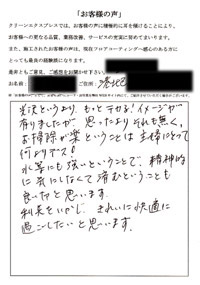 「お客様の声」
クリーンエキスプレスでは、お客様の声に積極的に耳を傾けることにより、
お客様への更なる品質、業務改善、サービスの充実に努めてまいります。
また、施工されたお客様の声は、現在フロアコーティングへ感心のある方に
とっても最良の経験談になります。
是非ともご意見、ご感想をお聞かせ下さい
お名前：
光沢というより、もっとテカる!イメージが
有りましたが 思ったよりそれも無く。
お掃除が楽ということは 主婦にとって
何よりデス!
水等にも強いということで、精神的
に気にしなくて済むということも
良い分と思います。
利点をいかし、きれいに快適に
過ごしたいと思います。